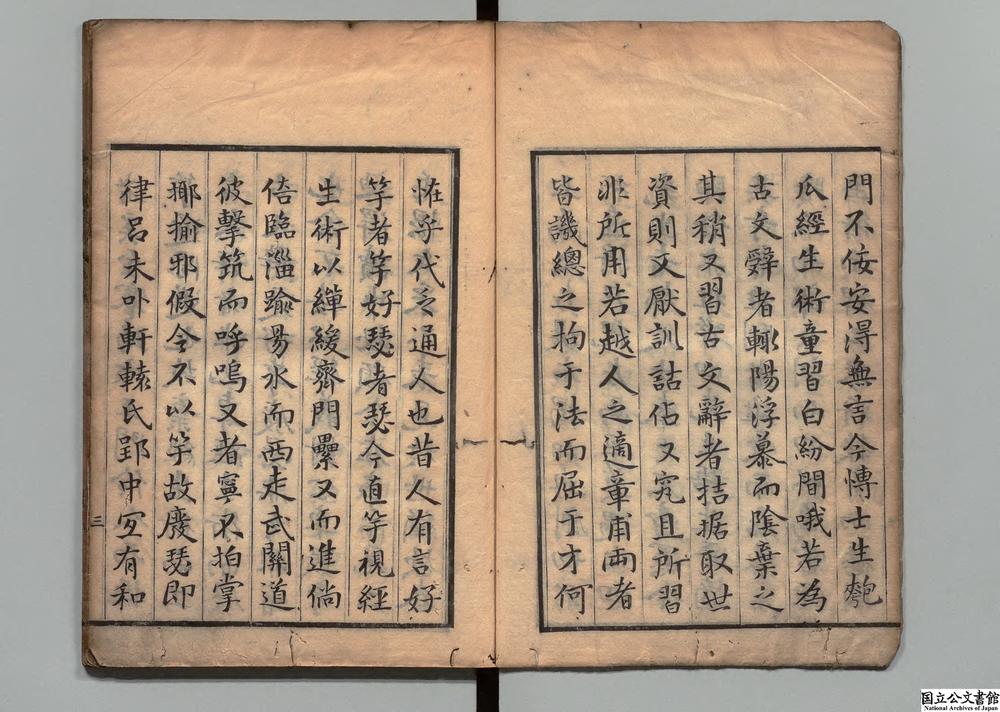 門不佞安淂無言今愽士生匏
瓜經生術童習白紛間哦若為
古文辭者輙陽浮慕而隂棄之
其稍又習古文辭者拮据取世
資則又厭訓詁佔又究且所習
非所用若越人之適章甫両者
皆譏總之拘于法而屈于才何
恠乎代乏通人也昔人有言好
竽者竽好瑟者瑟今直竽視經
生術以繟緩齊門纍又而進倘
倍臨淄踰昜水而西走武關道
彼擊筑而呼嗚又者寧不拍掌
揶揄邪假令不以竽故廢瑟即
律呂未卟軒轅氏郢中冝有和
三
国立公文書館
National Archives of Japan